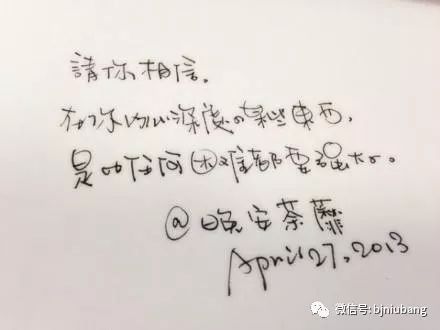 請你相信.
在你内心深處の某些東西,
是比任何困難都要强大の。
@晚安荼蘼
April 27, 2013
微信号: bjniubang